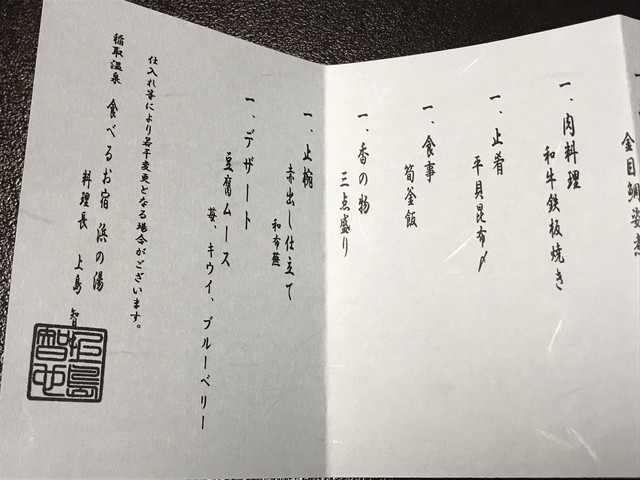 金目鯛姿煮
一、肉料理
和牛鉄板焼き
一、止肴
平貝昆布〆
一、食事
筍釜飯
一、香の物
三点盛り
一、止椀
赤出し仕立て
和布蕪
一、デザート
豆腐ムース
苺、キウイ、ブルーベリー
仕入れ等により若干変更となる場合がございます。
稲取温泉 食べるお宿 浜の湯
料理長 上島 智